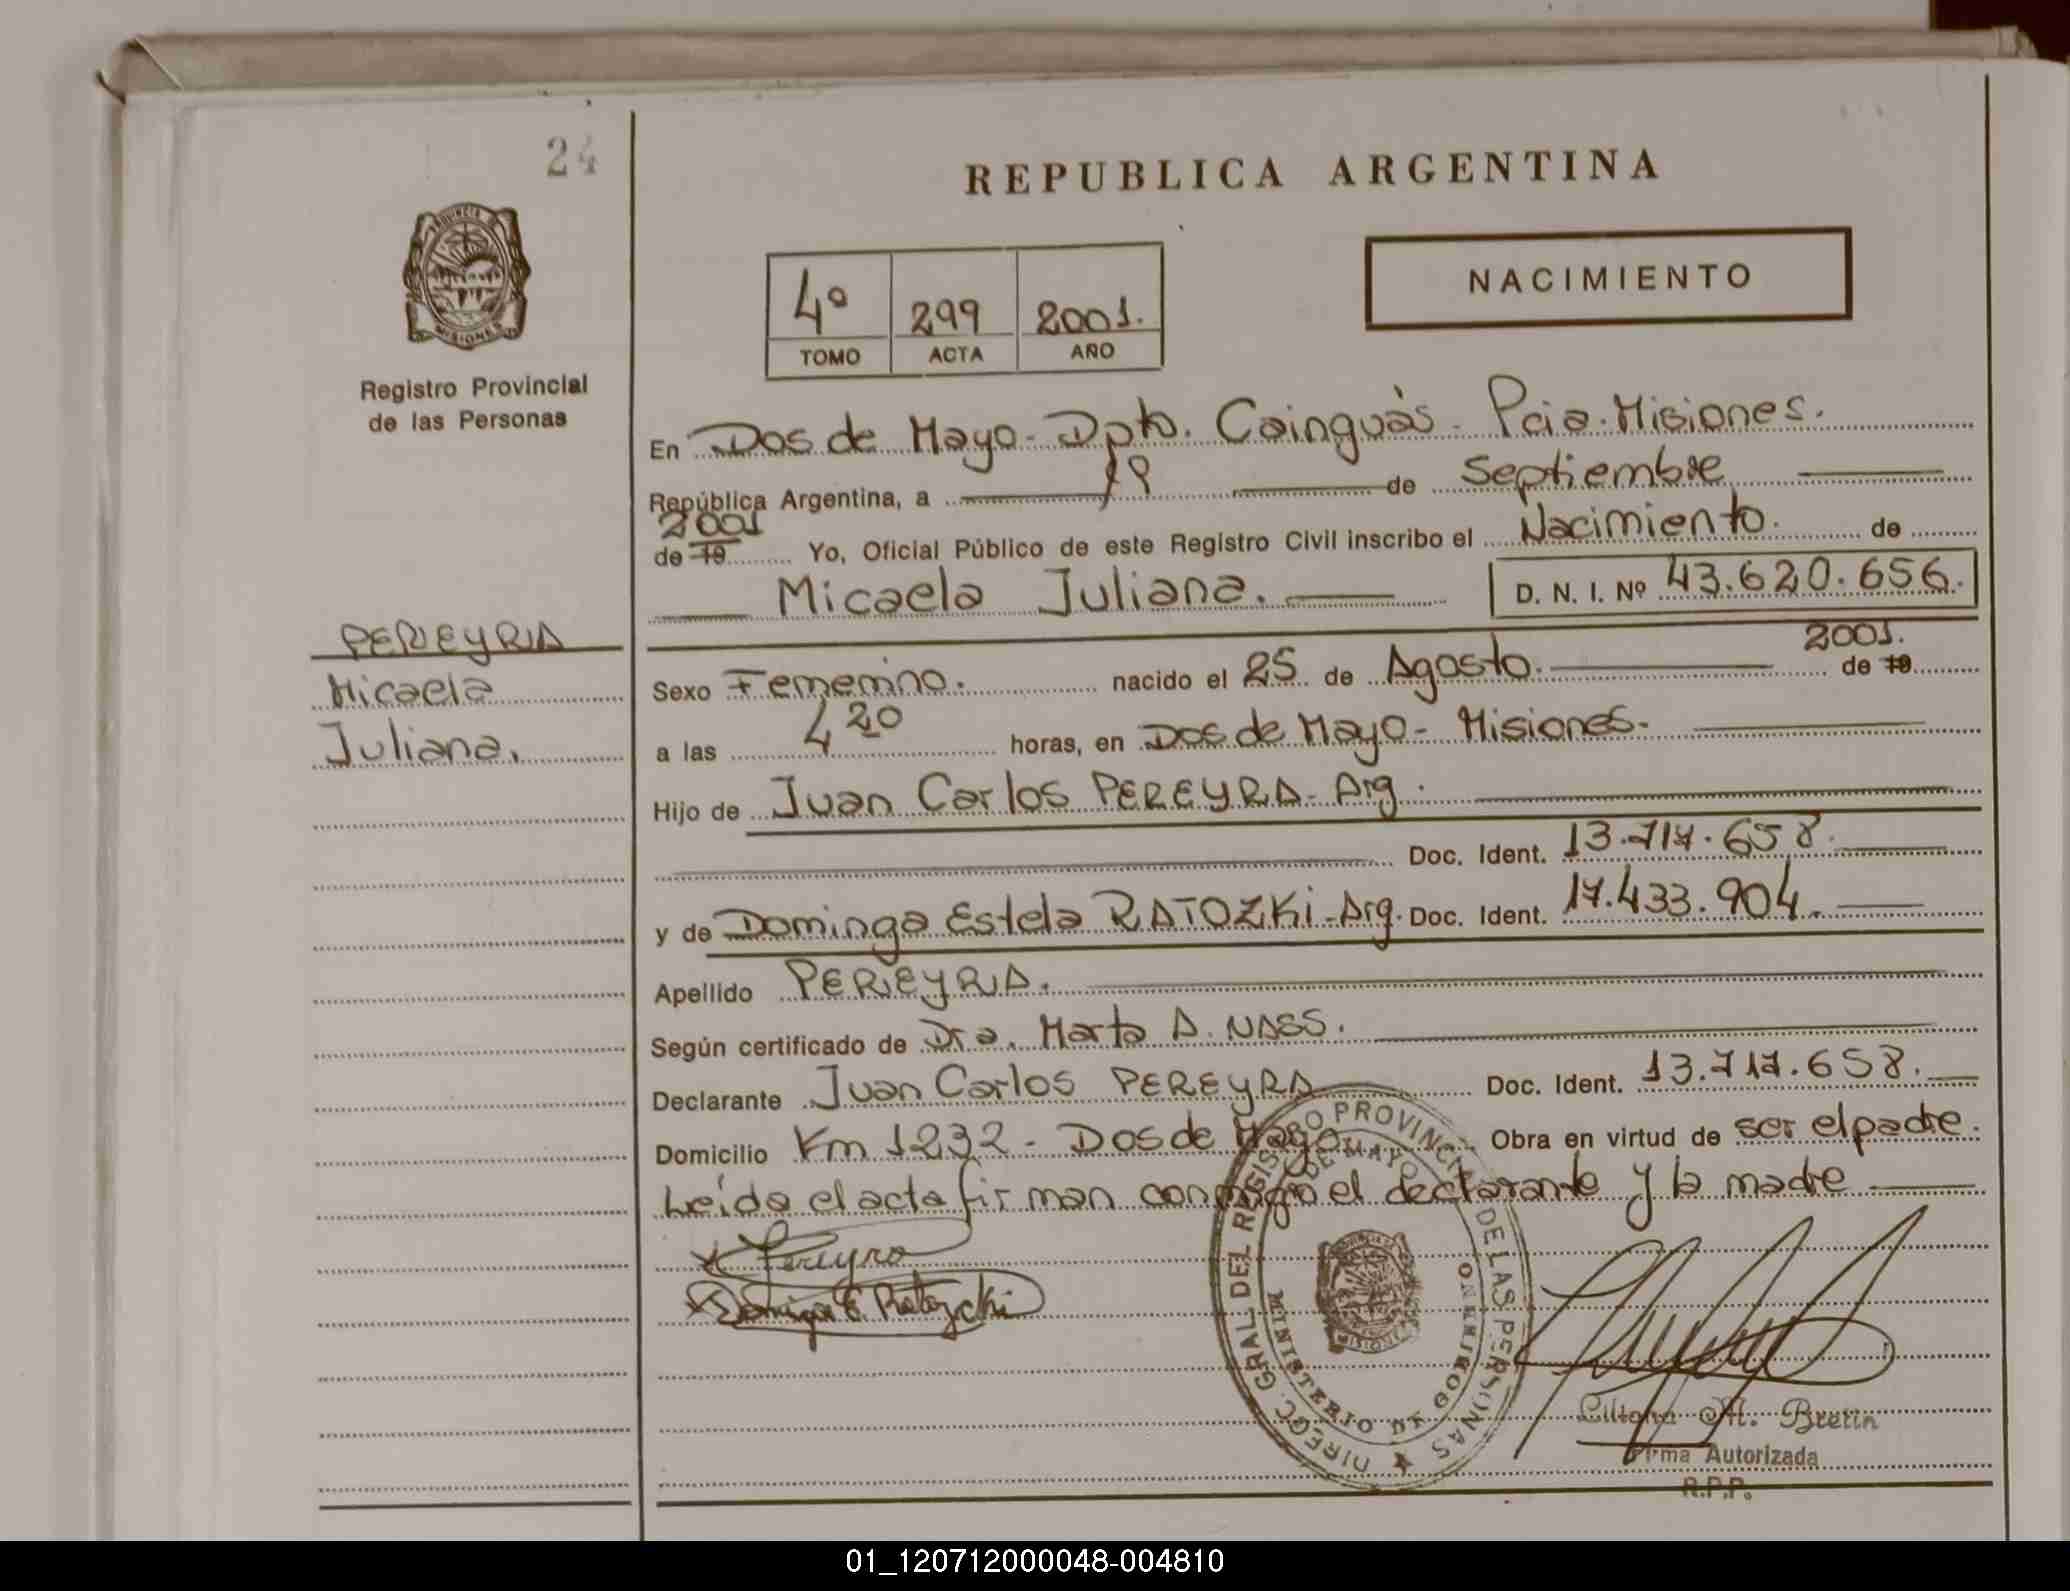 24
REPUBLICA ARGENTINA
PROVINCIA DE
MISIONES
Registro Provincial
de las Personas
4º 299 2001.
TOMO ACTA AÑO
NACIMIENTO
En Dos de Mayo - Dpto. Cainguás - Pcia. Misiones.
República Argentina, a 19 de Septiembre
2001
de 19 Yo, Oficial Público de este Registro Civil inscribo el Nacimiento. de
Micaela Juliana. D. N. I. Nº 43.620.656.
PEREYRA
Micaela
Juliana.
2001.
Sexo Femenino. nacido el 25 de Agosto. de 19
a las 4 20 horas, en Dos de Mayo - Misiones.
Hijo de Juan Carlos PEREYRA - Arg.
Doc. Ident. 13.717.658.
y de Dominga Estela RATOZKi - Arg. Doc. Ident. 17.433.904.
Apellido PEREYRA.
Según certificado de Dra. Marta A. NASS.
Declarante Juan Carlos PEREYRA Doc. Ident. 13.717.658.
Domicilio Km 1232 - Dos de Mayo Obra en virtud de ser el padre.
Leída el acta firman conmigo el declarante y la madre
Pereyra
Dominga E. Ratozcki
DIRECC. GRAL. DEL REGISTRO PROVINCIAL DE LAS PERSONAS
DE MAYO
MINISTERIO DE GOBIERNO
MISIONES
Liliana M. Bretin
Firma Autorizada
R.P.P.
01_120712000048-004810